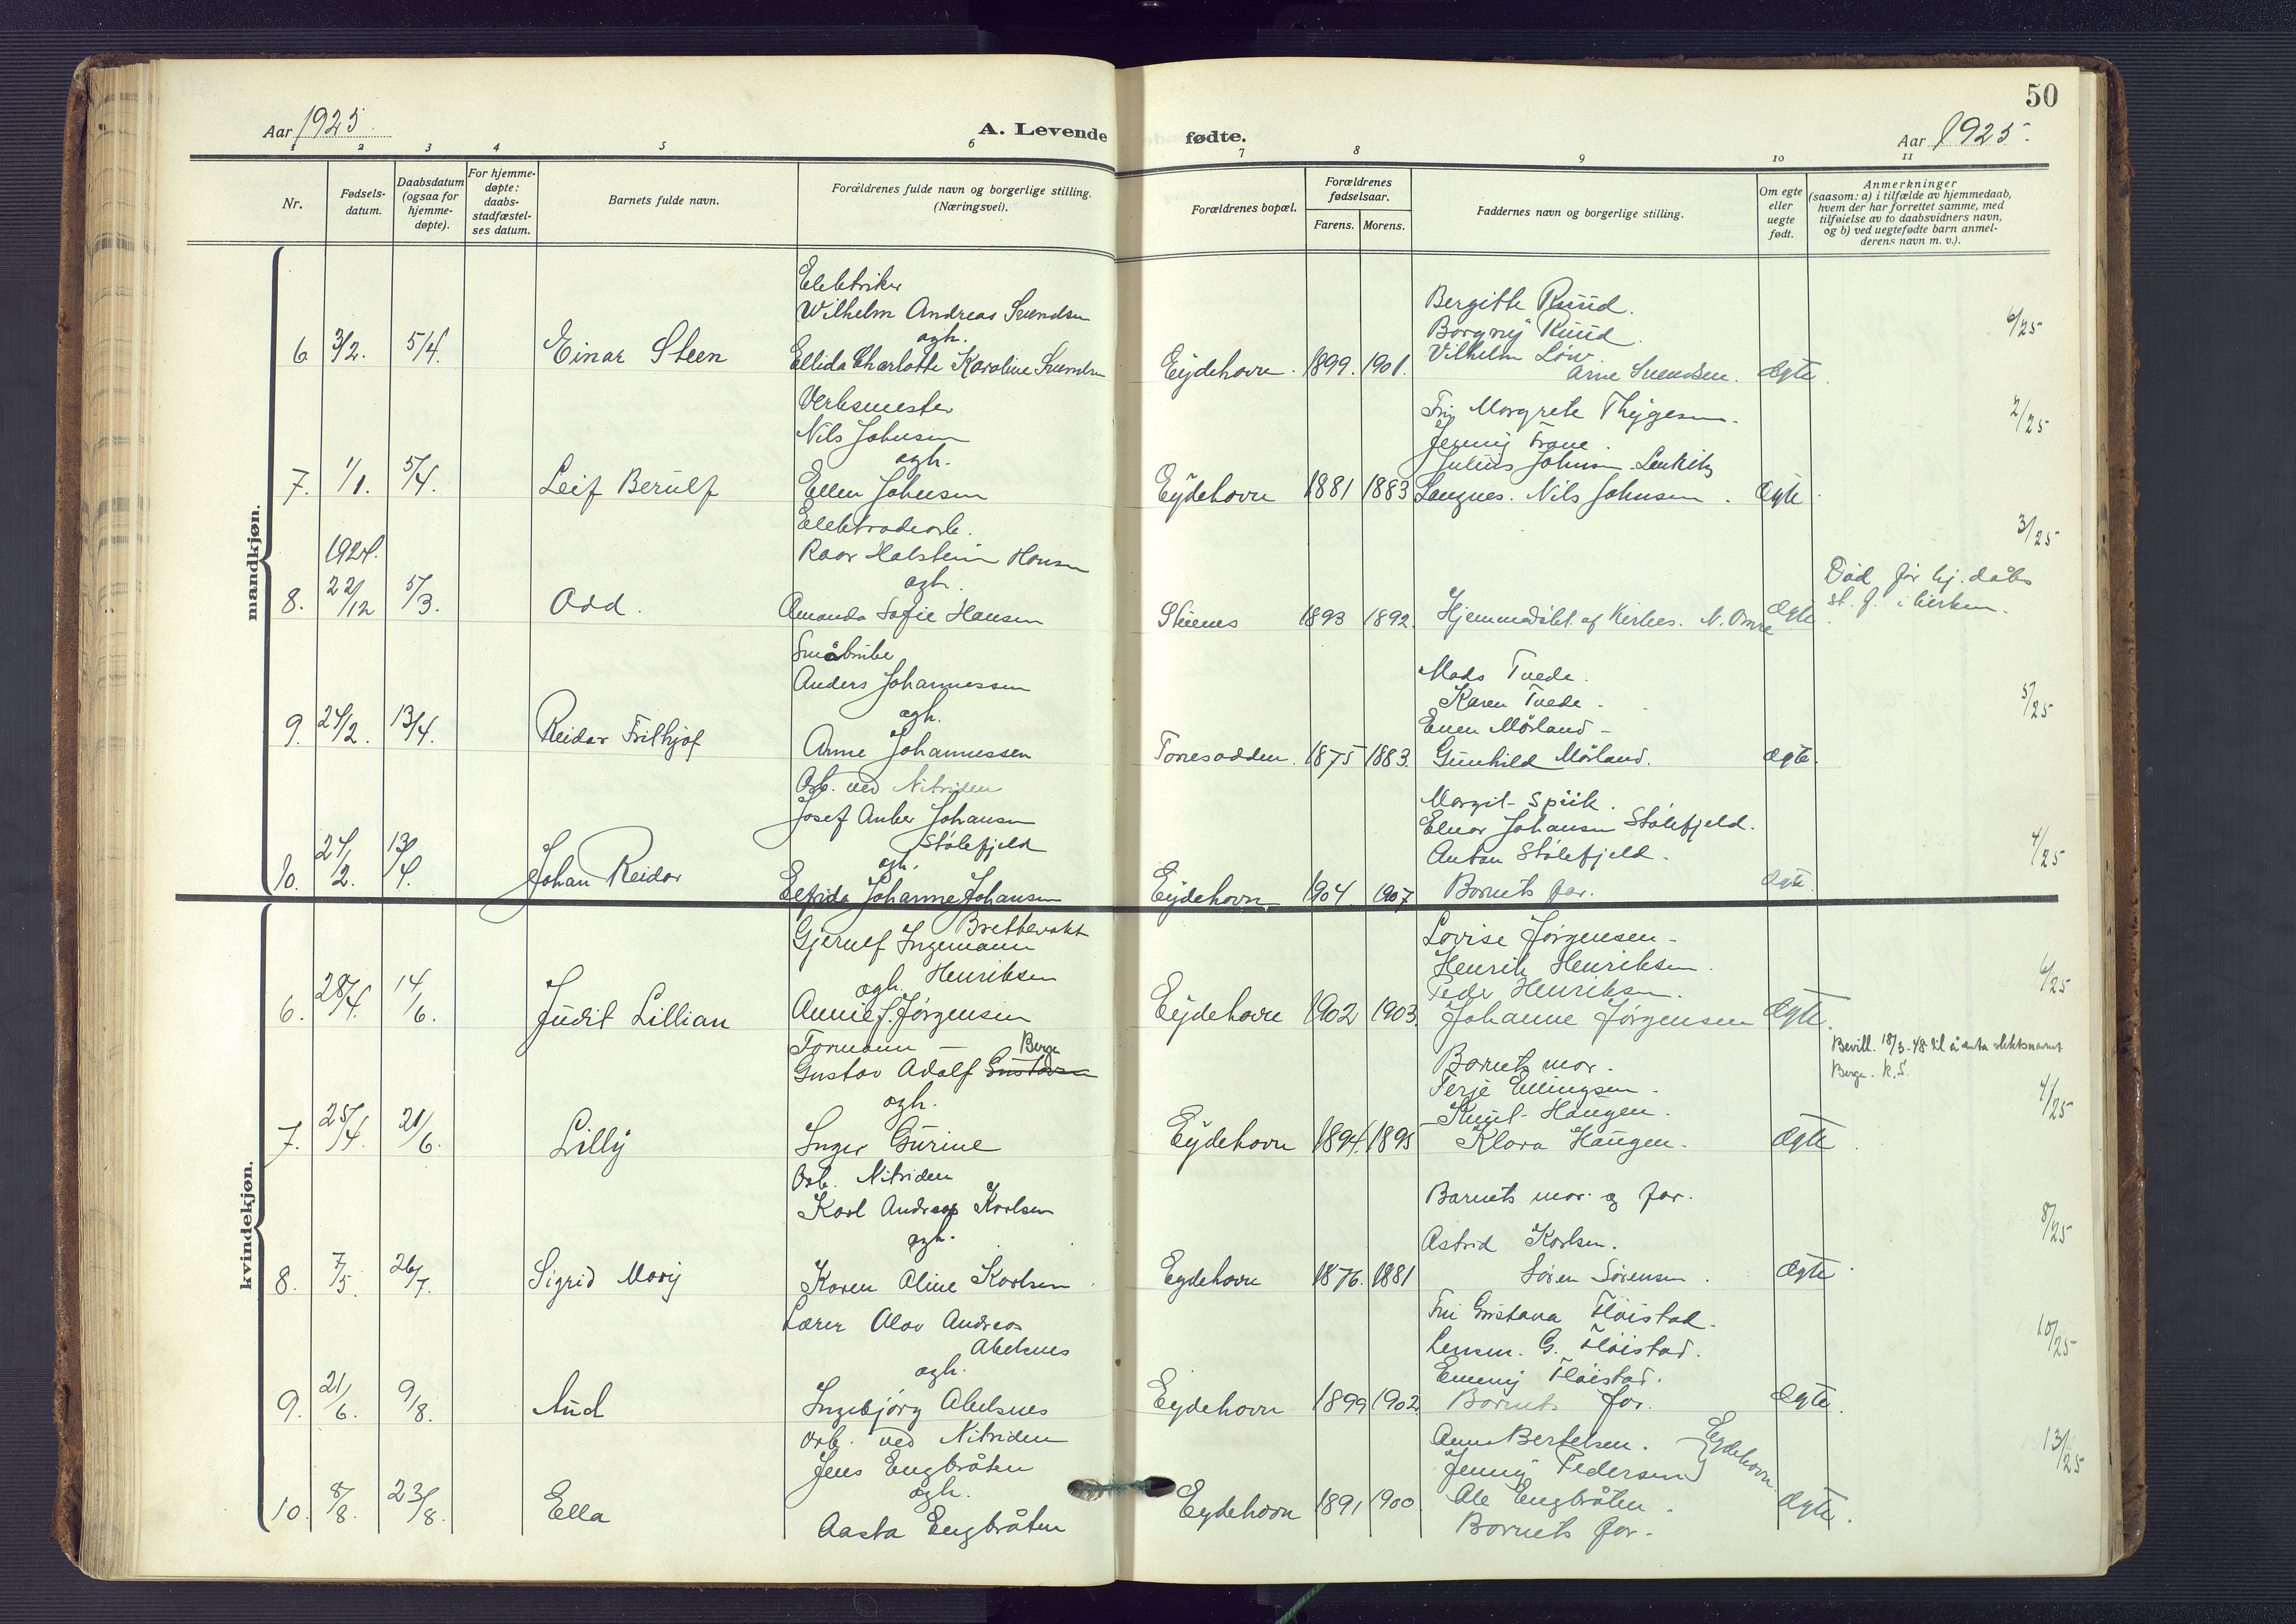 50
Aar 1925.
A. Levende fødte.
Aar 1925.
1 2 3 4 5 6 7 8 9 10 11
Nr.
Fødsels-
datum.
Daabsdatum
(ogsaa for
hjemme-
døpte).
For hjemme-
døpte:
daabs-
stadfæstel-
ses datum.
Barnets fulde navn.
Forældrenes fulde navn og borgerlige stilling.
(Næringsvei).
Forældrenes bopæl.
Forældrenes
fødselsaar.
Farens. Morens.
Faddernes navn og borgerlige stilling.
Om egte
eller
uegte
født.
Anmerkninger
(saasom: a) i tilfælde av hjemmedaab,
hvem der har forrettet samme, med
tilføielse av to daabsvidners navn,
og b) ved uegtefødte barn anmel-
derens navn m. v.).
mandkjøn.
Elektriker
Wilhelm Andreas Svendsen
ogh.
6 3/2. 5/4. Einar Steen Ellida Charlotte Karoline Svendsen Eydehavn. 1899. 1901.
Bergitte Ruud.
Borgny Ruud.
Vilhelm Löw.
Arne Svendsen. Ægte.
6/25
Verksmester
Nils Johnsen
ogh.
7. 1/1. 5/4. Leif Berulf Ellen Johnsen Eydehavn 1881 1883
Margrete Thygesen.
Jenny Trane.
Julius Johnsen
Langnes. Nils Johnsen. Ægte.
2/25
Elektrodearb.
Roar Halstein Hansen
ogh.
1924.
8. 22/12 5/3. Odd. Amanda Sofie Hansen 1893 1892.
Hjemmedöbt af Kirkes. N. Ægte.
Död för hj. dåbs
st. f. i kirken.
3/25
Småbruker
Anders Johannessen
ogh.
9. 24/2. 13/4. Reidar Frithjof Anne Johannessen Torresodden. 1875 1883.
Mads Tvede.
Karen Tvede.
Even Mörland
Gunhild Mörland. Ægte.
5/25
Arb. ved Nitriden
Josef Anker Johansen
Stölefjeld
ogh.
10. 24/2. 13/4. Johan Reidar Elfrida Johanne Johansen Eydehavn 1904 1907
Margit Spiik.
Elnar Johansen Stölefjeld.
Anton Stölefjeld.
Barnets far. Ægte.
4/25
kvindekjøn.
Gjerulf Ingemann
Henriksen
ogh.
6. 28/4. 14/6. Judit Lillian Annie J. Jørgensen Eydehavn 1902 1903.
Lovise Jørgensen
Henrik Henriksen.
Peder Henriksen.
Johanne Jørgensen Ægte.
6/25
Formann Berge
Gustav Adolf Gustavsen
ogh.
7. 25/4. 21/6. Lilly Inger Gurine Eydehavn 1894. 1895
Barnets mor.
Terje Ellingsen.
Knut Haugen.
Klara Haugen. Ægte.
Bevill. 18/3-48 til å anta slektsnavnet
Berge. K.S.
4/25
Arb. Nitriden
Karl Andreas Karlsen
ogh.
8. 7/5. 26/7. Sigrid Mary Karen Aline Karlsen Eydehavn 1876. 1881
Barnets mor og far.
Astrid Karlsen.
Sören Sörensen. Ægte.
8/25
Lærer Olav Andreas
Abelsnes
ogh.
9. 21/6. 9/8. Aud Ingebjörg Abelsnes Eydehavn 1899 1902
Gustava Flöistad.
Lensm. G. Flöistad.
Emmy Flöistad.
Barnets far. Ægte.
10/25
Arb. ved Nitriden
Jens Engbråten
ogh.
10. 8/8. 23/8. Ella Aasta Engbråten Eydehavn 1891 1900
Anne Bertelsen.
Jenny Pedersen Eydehavn
Ole Engbråten.
Barnets far. Ægte.
13/25